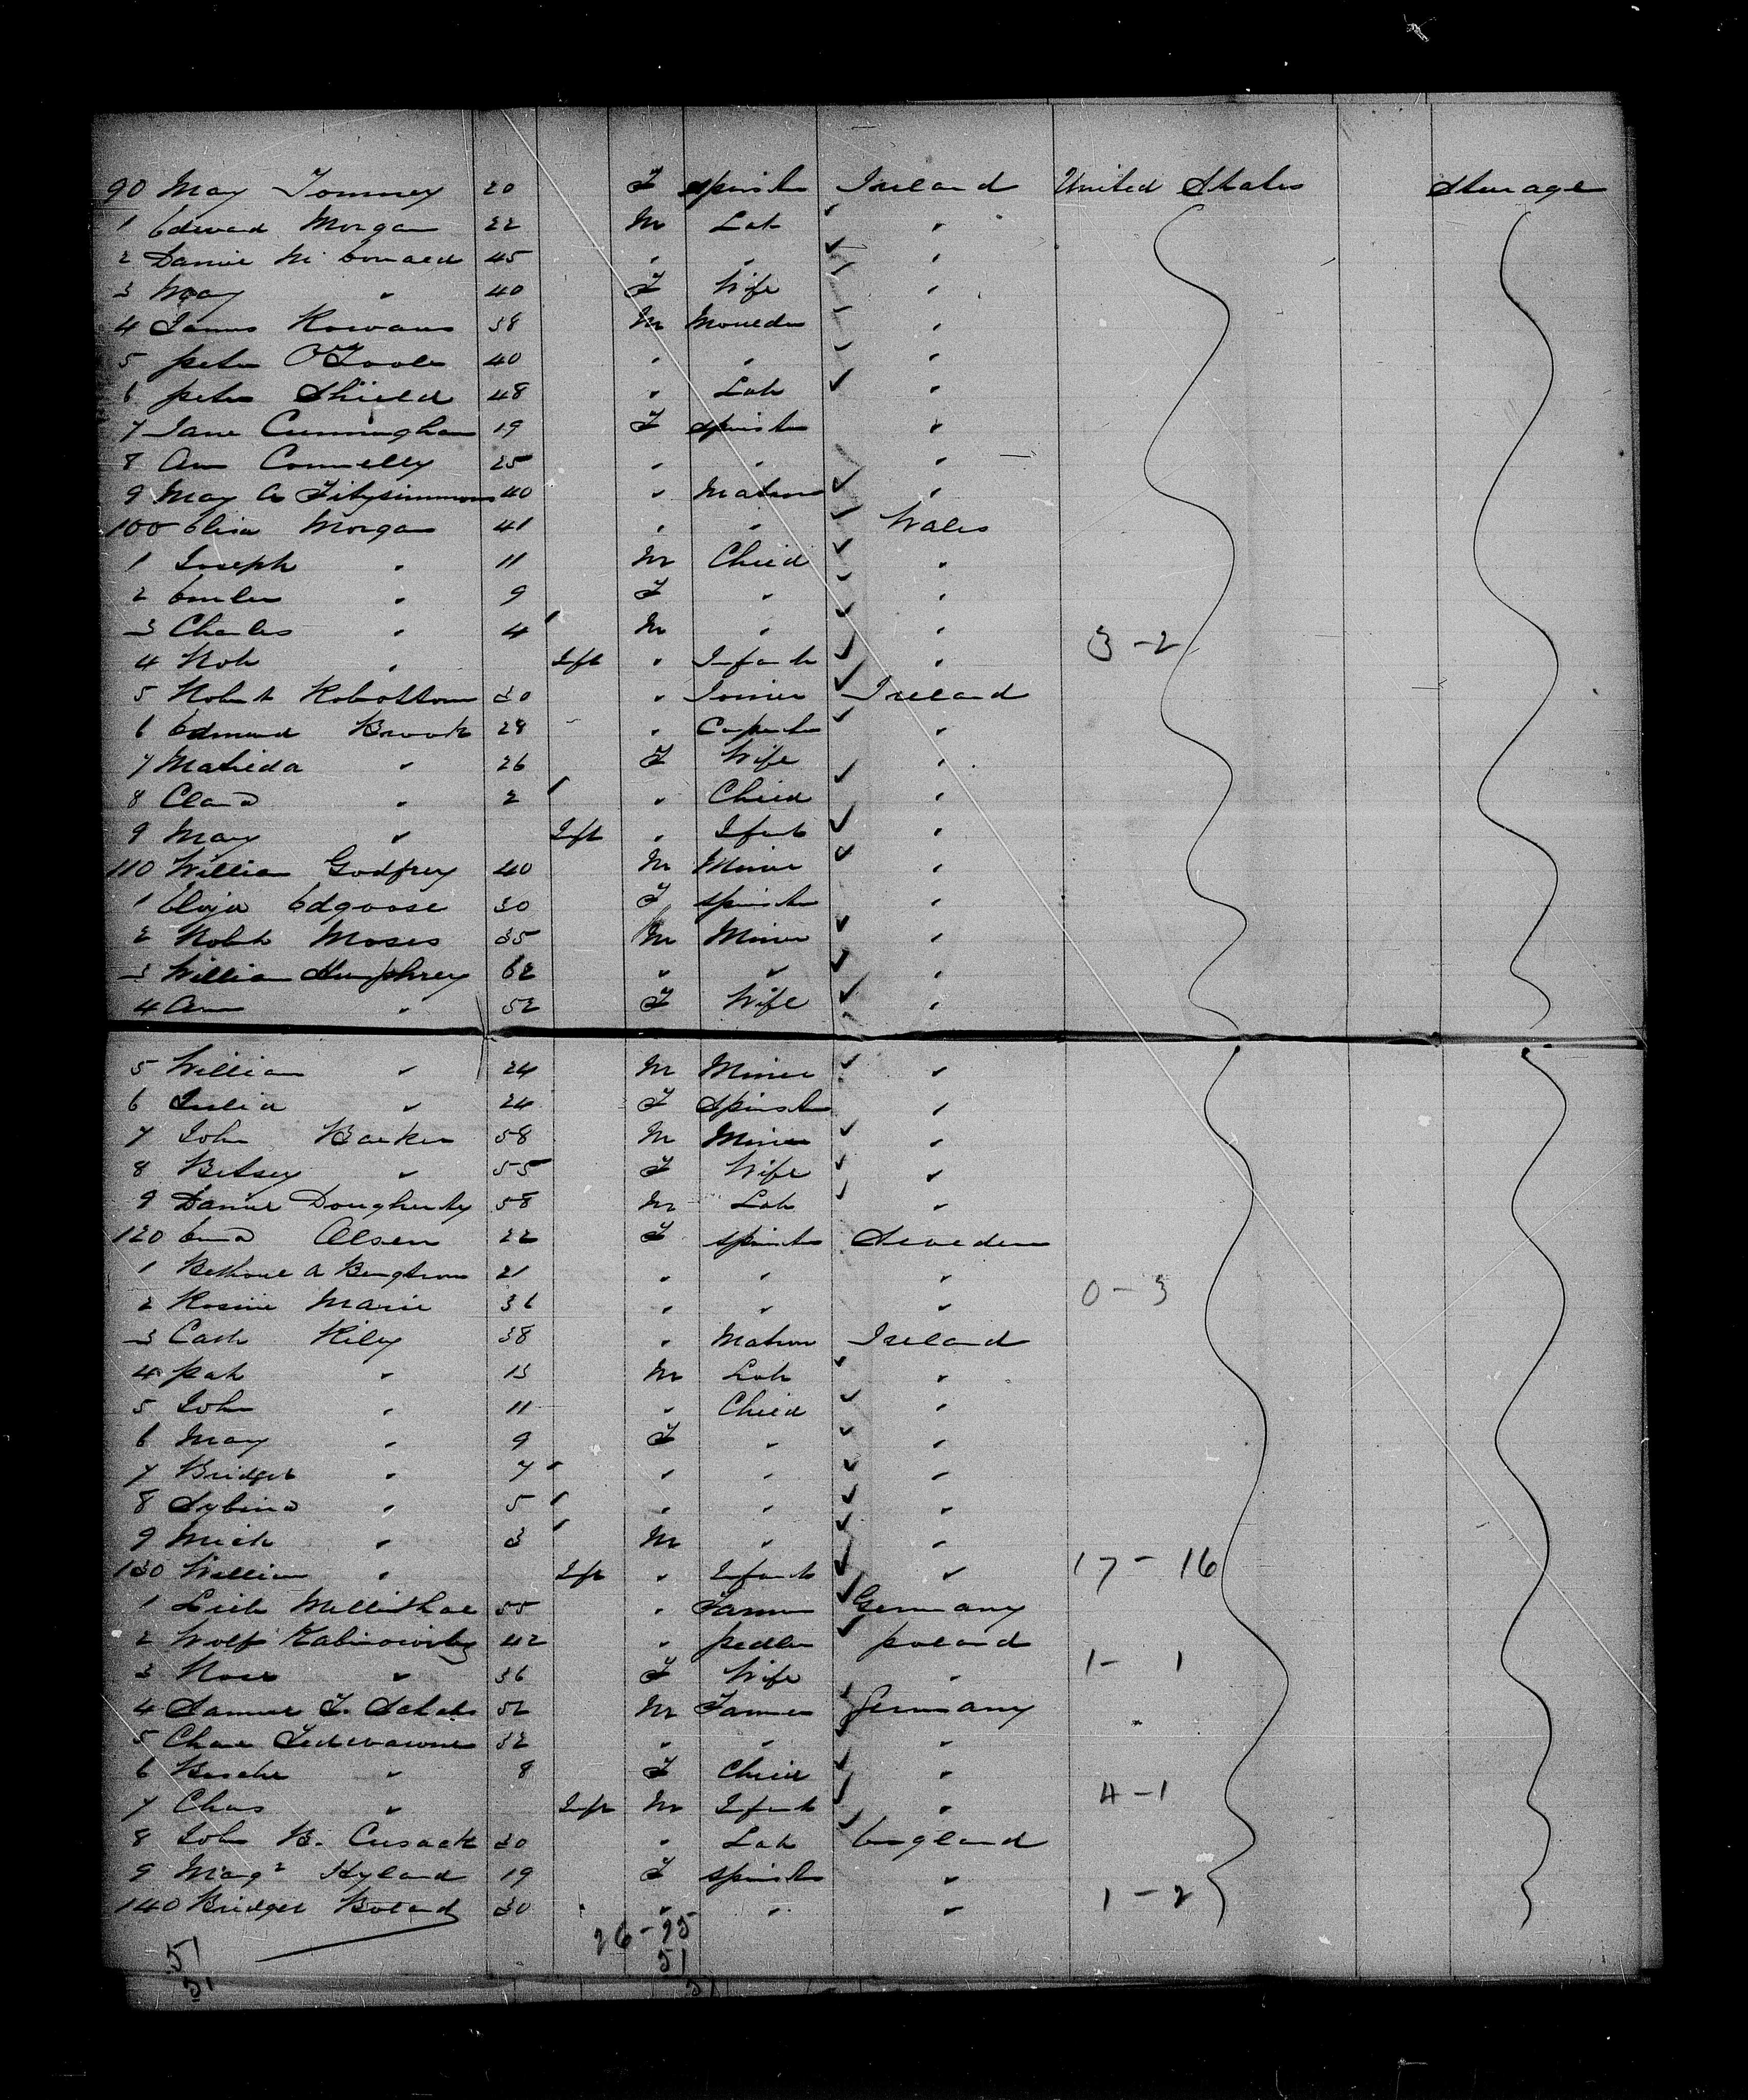 90 Mary Tommey 20 F Spinster Ireland United States Steerage
1 Edward Morgan 22 M Lab "
2 Daniel McConald 45 " " "
3 Mary " 40 F Wife "
4 James Rowans 38 M Moulder "
5 peter O'Toole 40 " " "
6 peter Shield 48 " Lab "
7 Jane Cunningham 19 F Spinster "
8 Ann Connelly 25 " " "
9 Mary A Fitzsimmons 40 " Matron "
100 Eliza Morgan 41 " " Wales
1 Joseph " 11 M Child "
2 " 9 F " "
3 Charles " 4 M " "
4 Rob " Inft " Infant " 3-2
5 Robert Robottom 30 " Joiner Ireland
6 Edmund Brook 28 " Carpenter "
7 Matilda " 26 F Wife "
8 Clara " 2 " Child "
9 Mary " Inft " Infant "
110 William Godfrey 40 M Miner "
1 Eliza Edgoose 30 F Spinster "
2 Robt Moses 35 M Miner "
3 William Humphrey 62 " " "
4 Ann " 52 F Wife "
5 William " 24 M Miner "
6 Julia " 24 F Spinster "
7 John Barker 58 M Miner "
8 Betsey " 55 F Wife "
9 Daniel Dougherty 58 M Lab "
120 Olsen 22 F Spinster Sweden
1 A Bengtson 21 " " "
2 Rosine Marie 36 " " " 0-3
3 Cath Riley 38 " Matron Ireland
4 pat " 13 M Lab "
5 John " 11 " Child "
6 Mary " 9 F " "
7 Bridget " 7 " " "
8 Sybina " 5 " " "
9 Mich " 3 M " "
130 William " Inft " Infant " 17-16
1 55 " Farmer Germany
2 Wolf 42 " pedler poland
3 Rosa " 36 F Wife " 1-1
4 Samuel F. 52 M Farmer Germany
5 32 " " "
6 " 8 F Child "
7 Chas " Inft M Infant " 4-1
8 John B. Cusack 30 " Lab England
9 Margt Hyland 19 F Spinster "
140 Bridget Boland 30 " " " 1-2
51 26-25
51
51 51